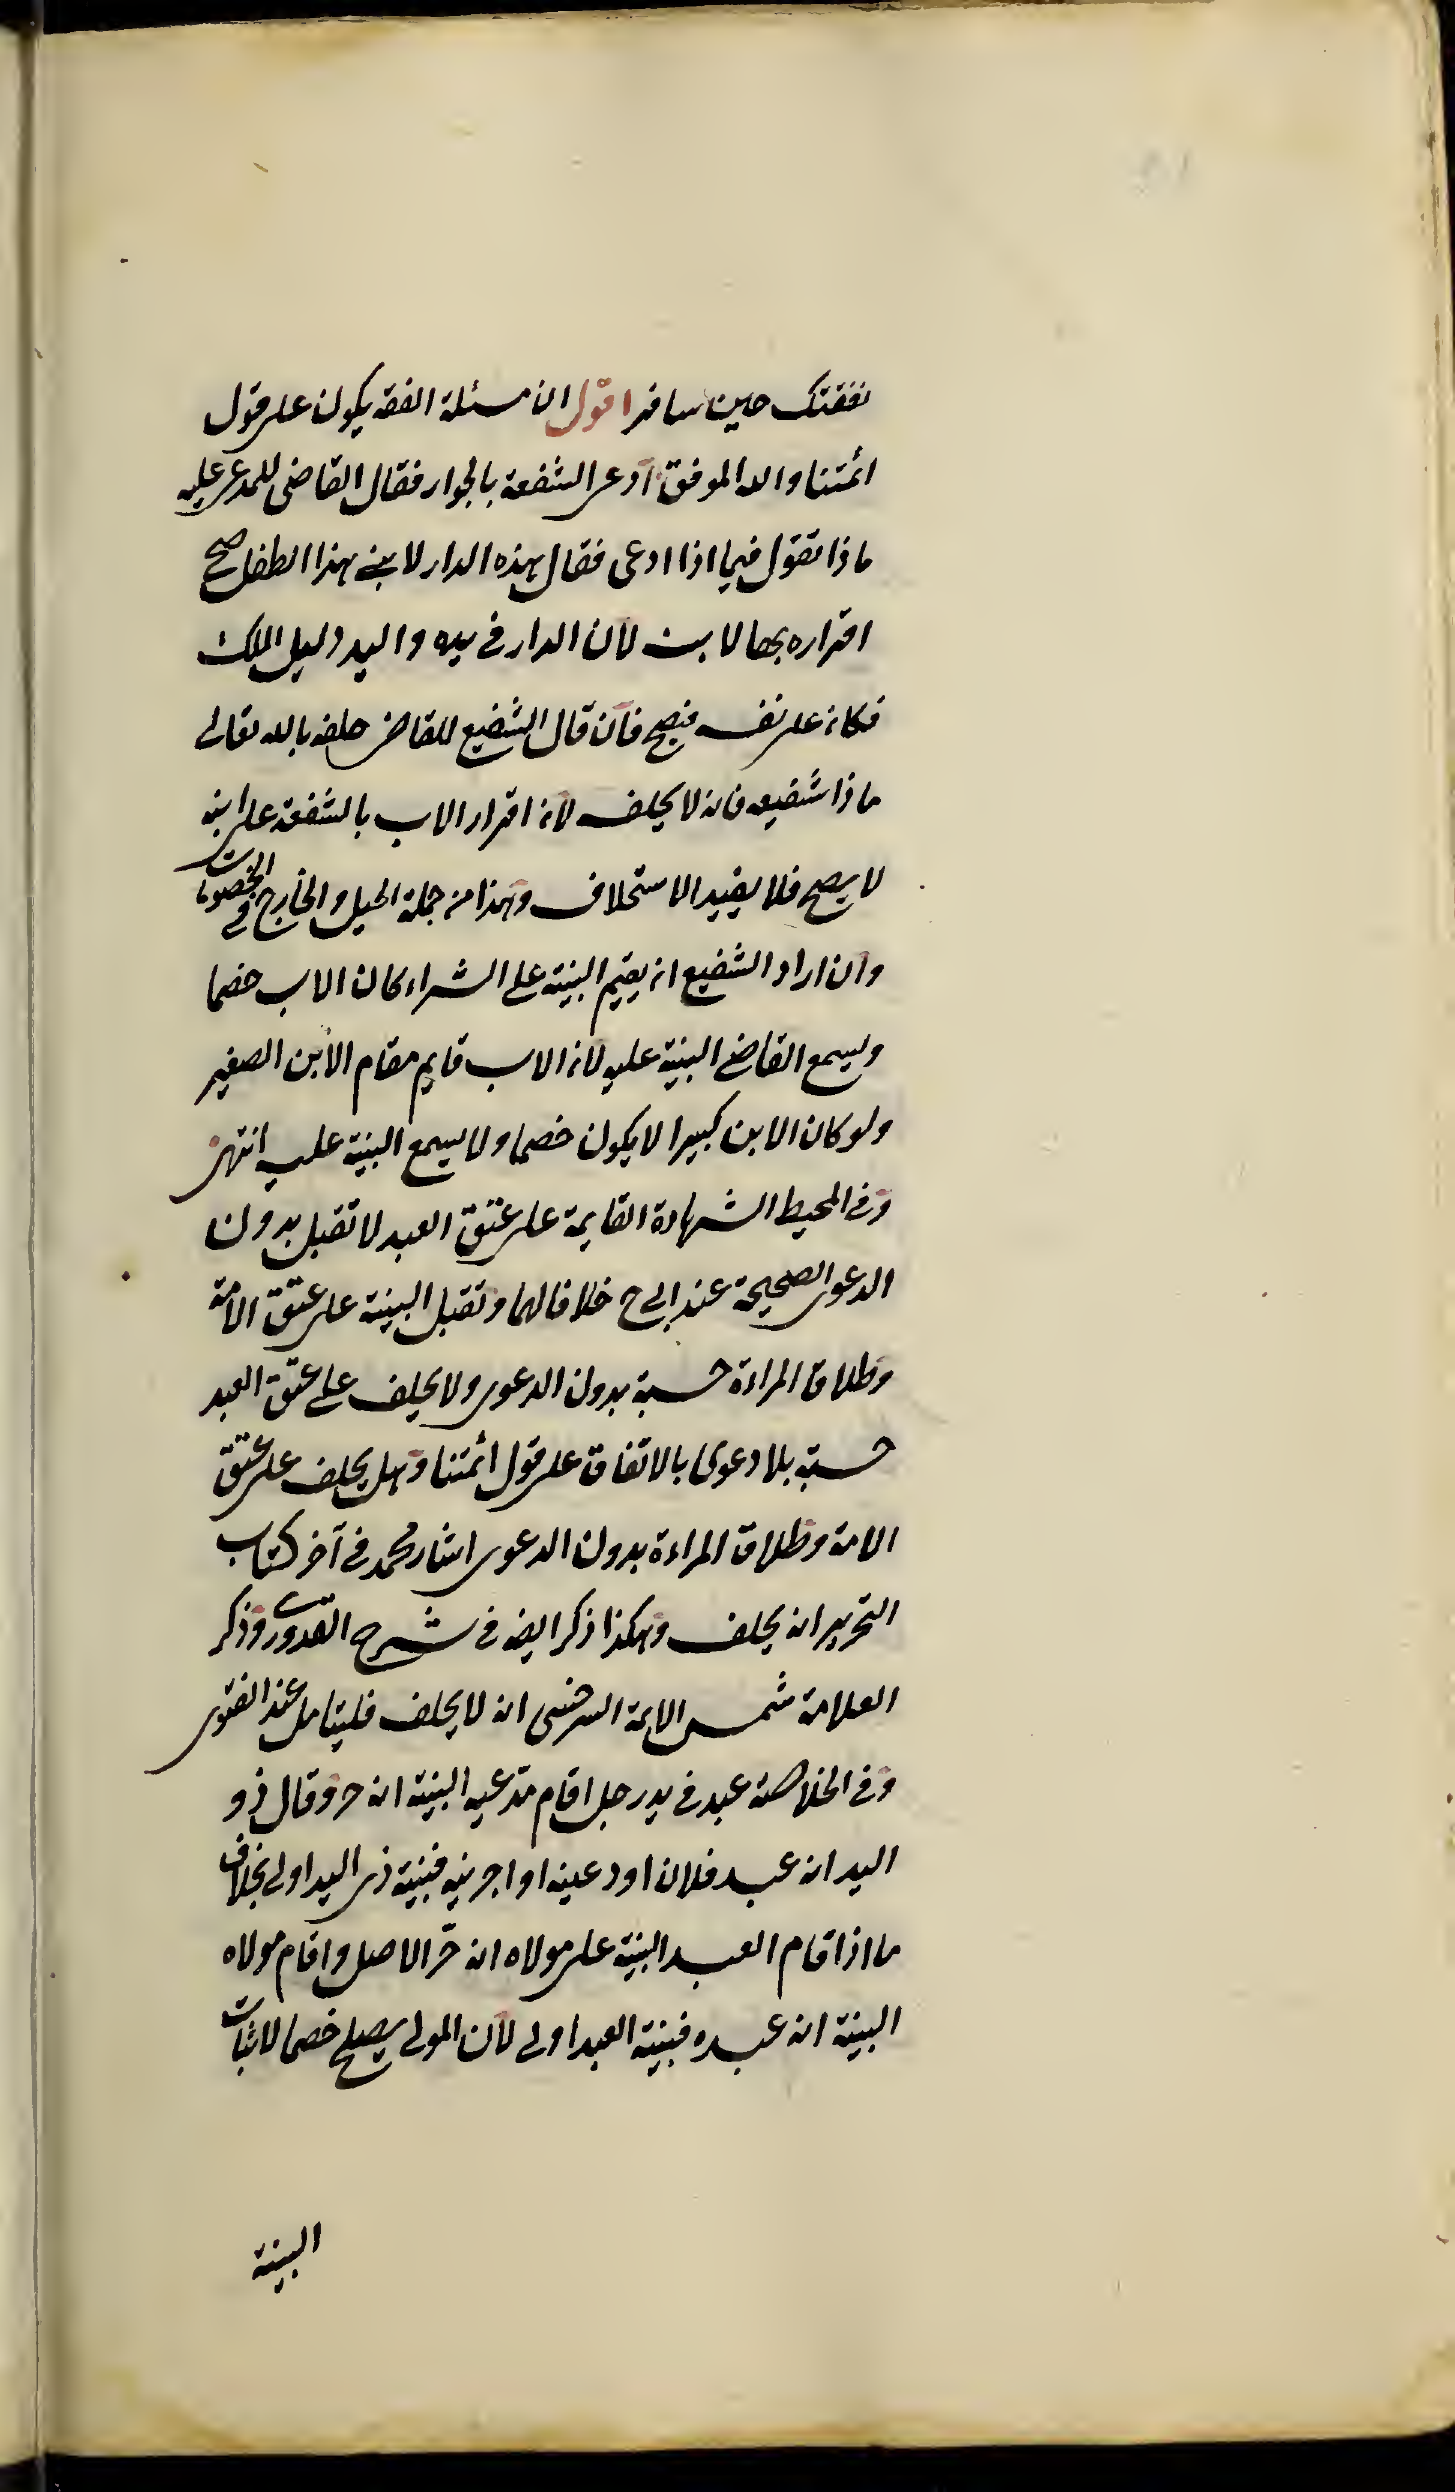 نفقتك حين سافر اقول ان مسئلة الفقه يكون على قول
ائمتنا والله الموفق ادعى الشفعة بالجوار فقال القاضى للمدعى عليه
ماذا تقول فيما اذا ادعى فقال هذه الدار لابنى هذا الطفل صح
اقراره بها لابنه لان الدار فى يده واليد دليل الملك
فكان على نفسه فيصح فان قال الشفيع للقاضى حلفه بالله تعالى
ماذا شفيعه فانه لا يحلف لان اقرار الاب بالشفعة على ابنه
لا يصح فلا يفيد الاستحلاف وهذا من جملة الحيل والمخارج فى الخصومات
وان اراد الشفيع ان يقيم البينة على الشراء كان الاب خصما
ويسمع القاضى البينة عليه لان الاب قايم مقام الابن الصغير
ولو كان الابن كبيرا لا يكون خصما ولا يسمع البينة عليه انتهى
وفى المحيط الشهادة القايمة على عتق العبد لا تقبل بدون
الدعوى الصحيحة عند ابى ح خلافا لهما وتقبل البينة على عتق الامة
وطلاق المراءة حسبة بدون الدعوى ولا يحلف على عتق العبد
حسبة بلا دعوى بالاتفاق على قول ائمتنا وهل يحلف على عتق
الامة وطلاق المراءة بدون الدعوى اشار محمد فى آخر كتاب
التحرير انه يحلف وهكذا ذكر ايضه فى شرح القدورى وذكر
العلامة شمس الايمة السرخسى انه لا يحلف فليتامل عند الفتوى
وفى الخلاصة عبد فى يد رجل اقام مدعيه البينة انه حر وقال ذو
اليد انه عبد فلان اودعنيه او اجرنيه فبينة ذى اليد اولى بخلاف
ما اذا قام العبد البينة على مولاه انه حر الاصل واقام مولاه
البينة انه عبده فبينة العبد اولى لان المولى يصلح خصما لاثبات
البينة